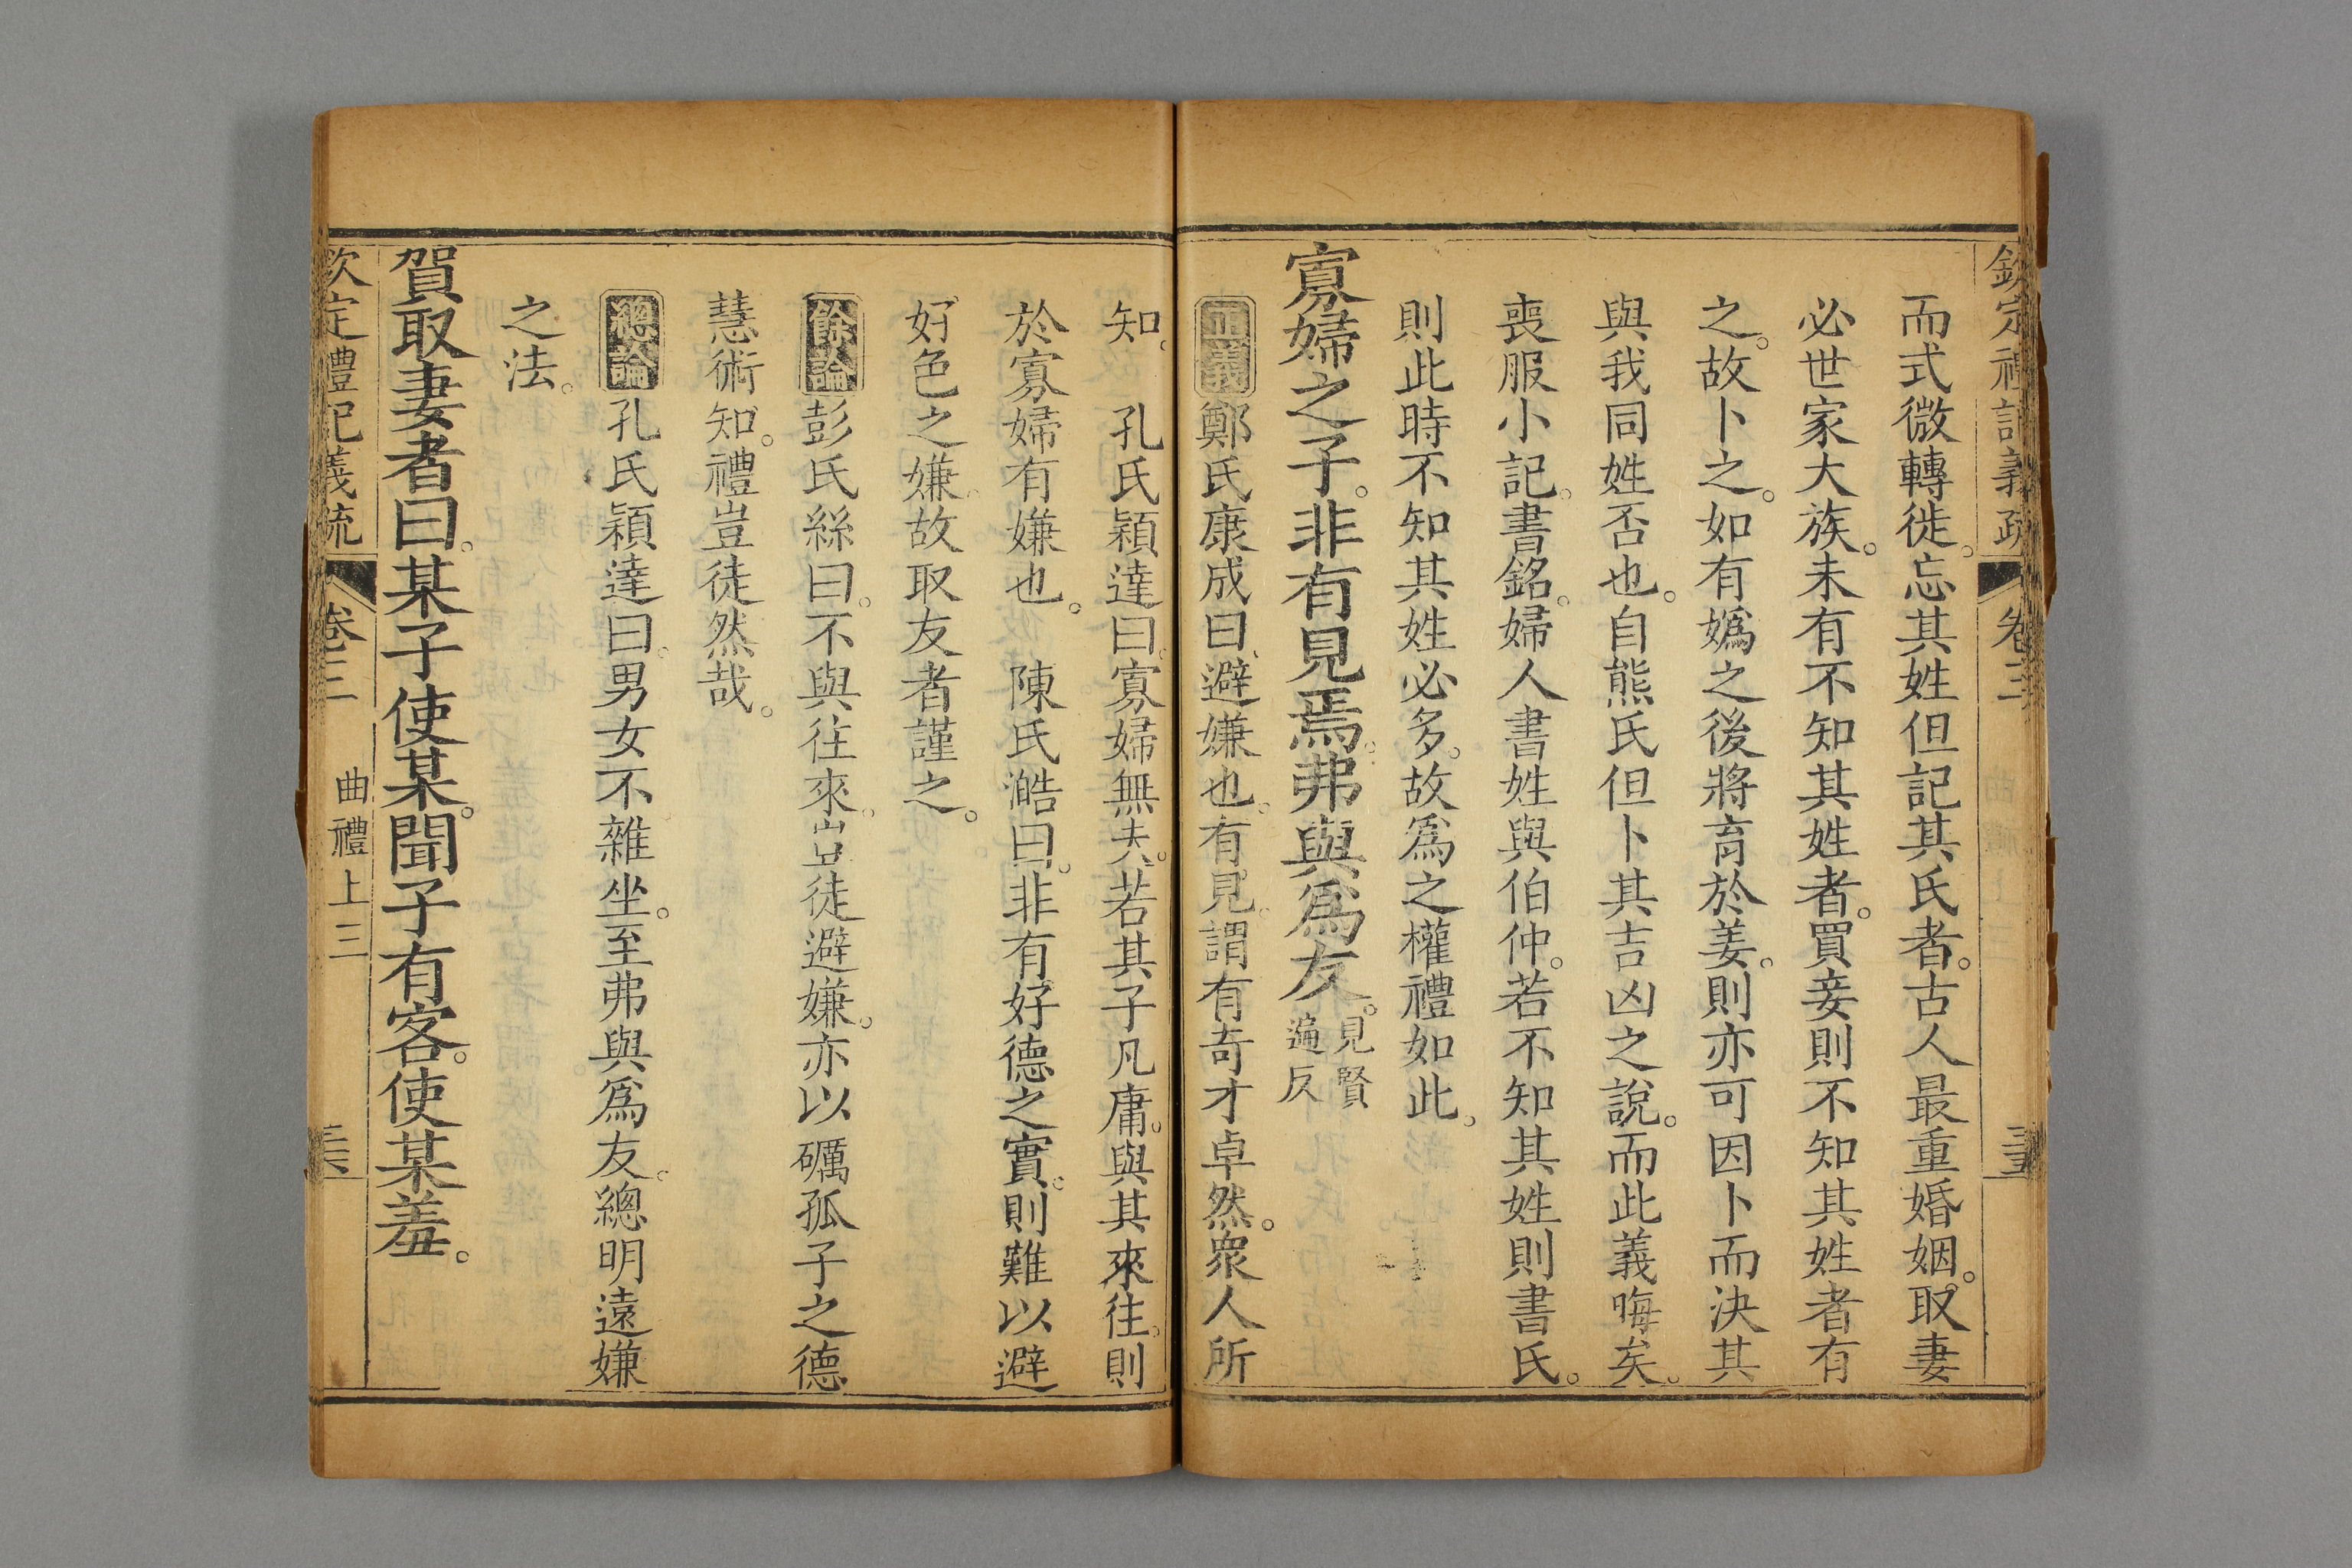 欽定禮記義疏 卷三
而式微轉徙。忘其姓但記其氏者。古人最重婚姻。取妻
必世家大族。未有不知其姓者。買妾則不知其姓者有
之。故卜之。如有嬀之後將育於姜。則亦可因卜而決其
與我同姓否也。自熊氏但卜其吉凶之說。而此義晦矣。
喪服小記。書銘。婦人書姓與伯仲。若不知其姓則書氏。
則此時不知其姓必多。故爲之權禮如此。
寡婦之子。非有見焉。弗與爲友。見賢遍反
正義鄭氏康成曰。避嫌也。有見。謂有奇才卓然。衆人所
知。 孔氏穎達曰。寡婦無夫。若其子凡庸。與其來往。則
於寡婦有嫌也。 陳氏澔曰。非有好德之實。則難以避
好色之嫌。故取友者謹之。
餘論彭氏絲曰。不與往來。豈徒避嫌。亦以礪孤子之德
慧術知。禮豈徒然哉。
總論孔氏穎達曰。男女不雜坐。至弗與爲友。總明遠嫌
之法。
賀取妻者曰。某子使某。聞子有客。使某羞。
欽定禮記義疏 卷三 曲禮上三